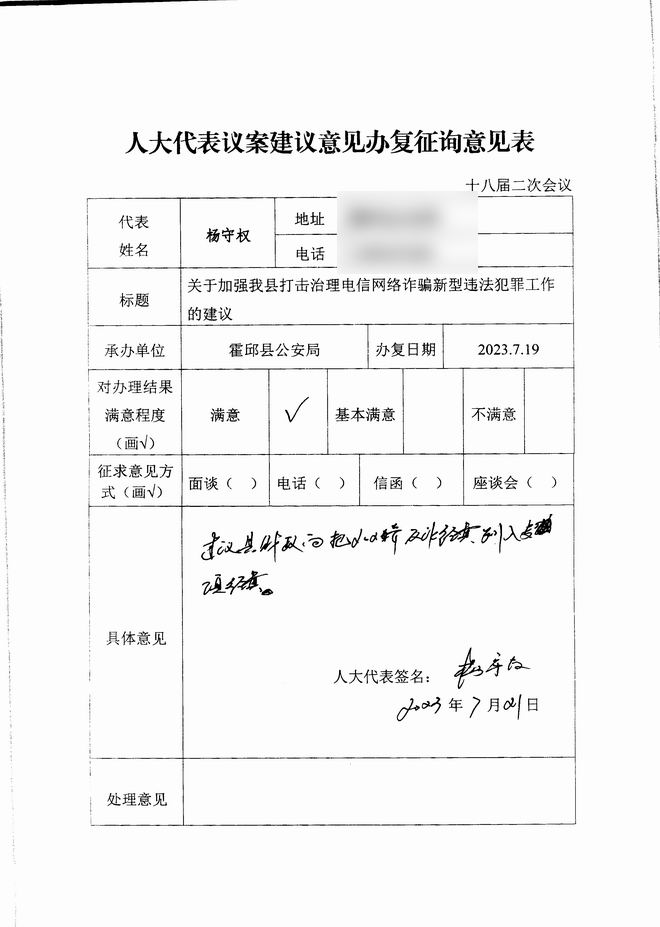 人大代表议案建议意见办复征询意见表
十八届二次会议
代表姓名 杨守权 地址
电话
标题 关于加强我县打击治理电信网络诈骗新型违法犯罪工作
的建议
承办单位 霍邱县公安局 办复日期 2023.7.19
对办理结果
满意程度
（画√） 满意 √ 基本满意 不满意
征求意见方
式（画√） 面谈（ ） 电话（ ） 信函（ ） 座谈会（ ）
具体意见
建议县财政 把 反诈经费列入
项经费。
人大代表签名： 杨守权
2023年7月21日
处理意见